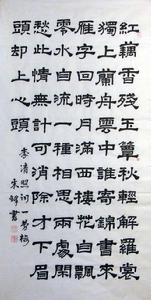 紅藕香殘玉簟秋輕解羅裳
獨上蘭舟雲中誰寄錦書來
雁字回時月滿西樓花自飄
零水自流一種相思兩處閑
愁此情無計可消除才下眉
頭却上心頭
李清照詞一剪梅
書